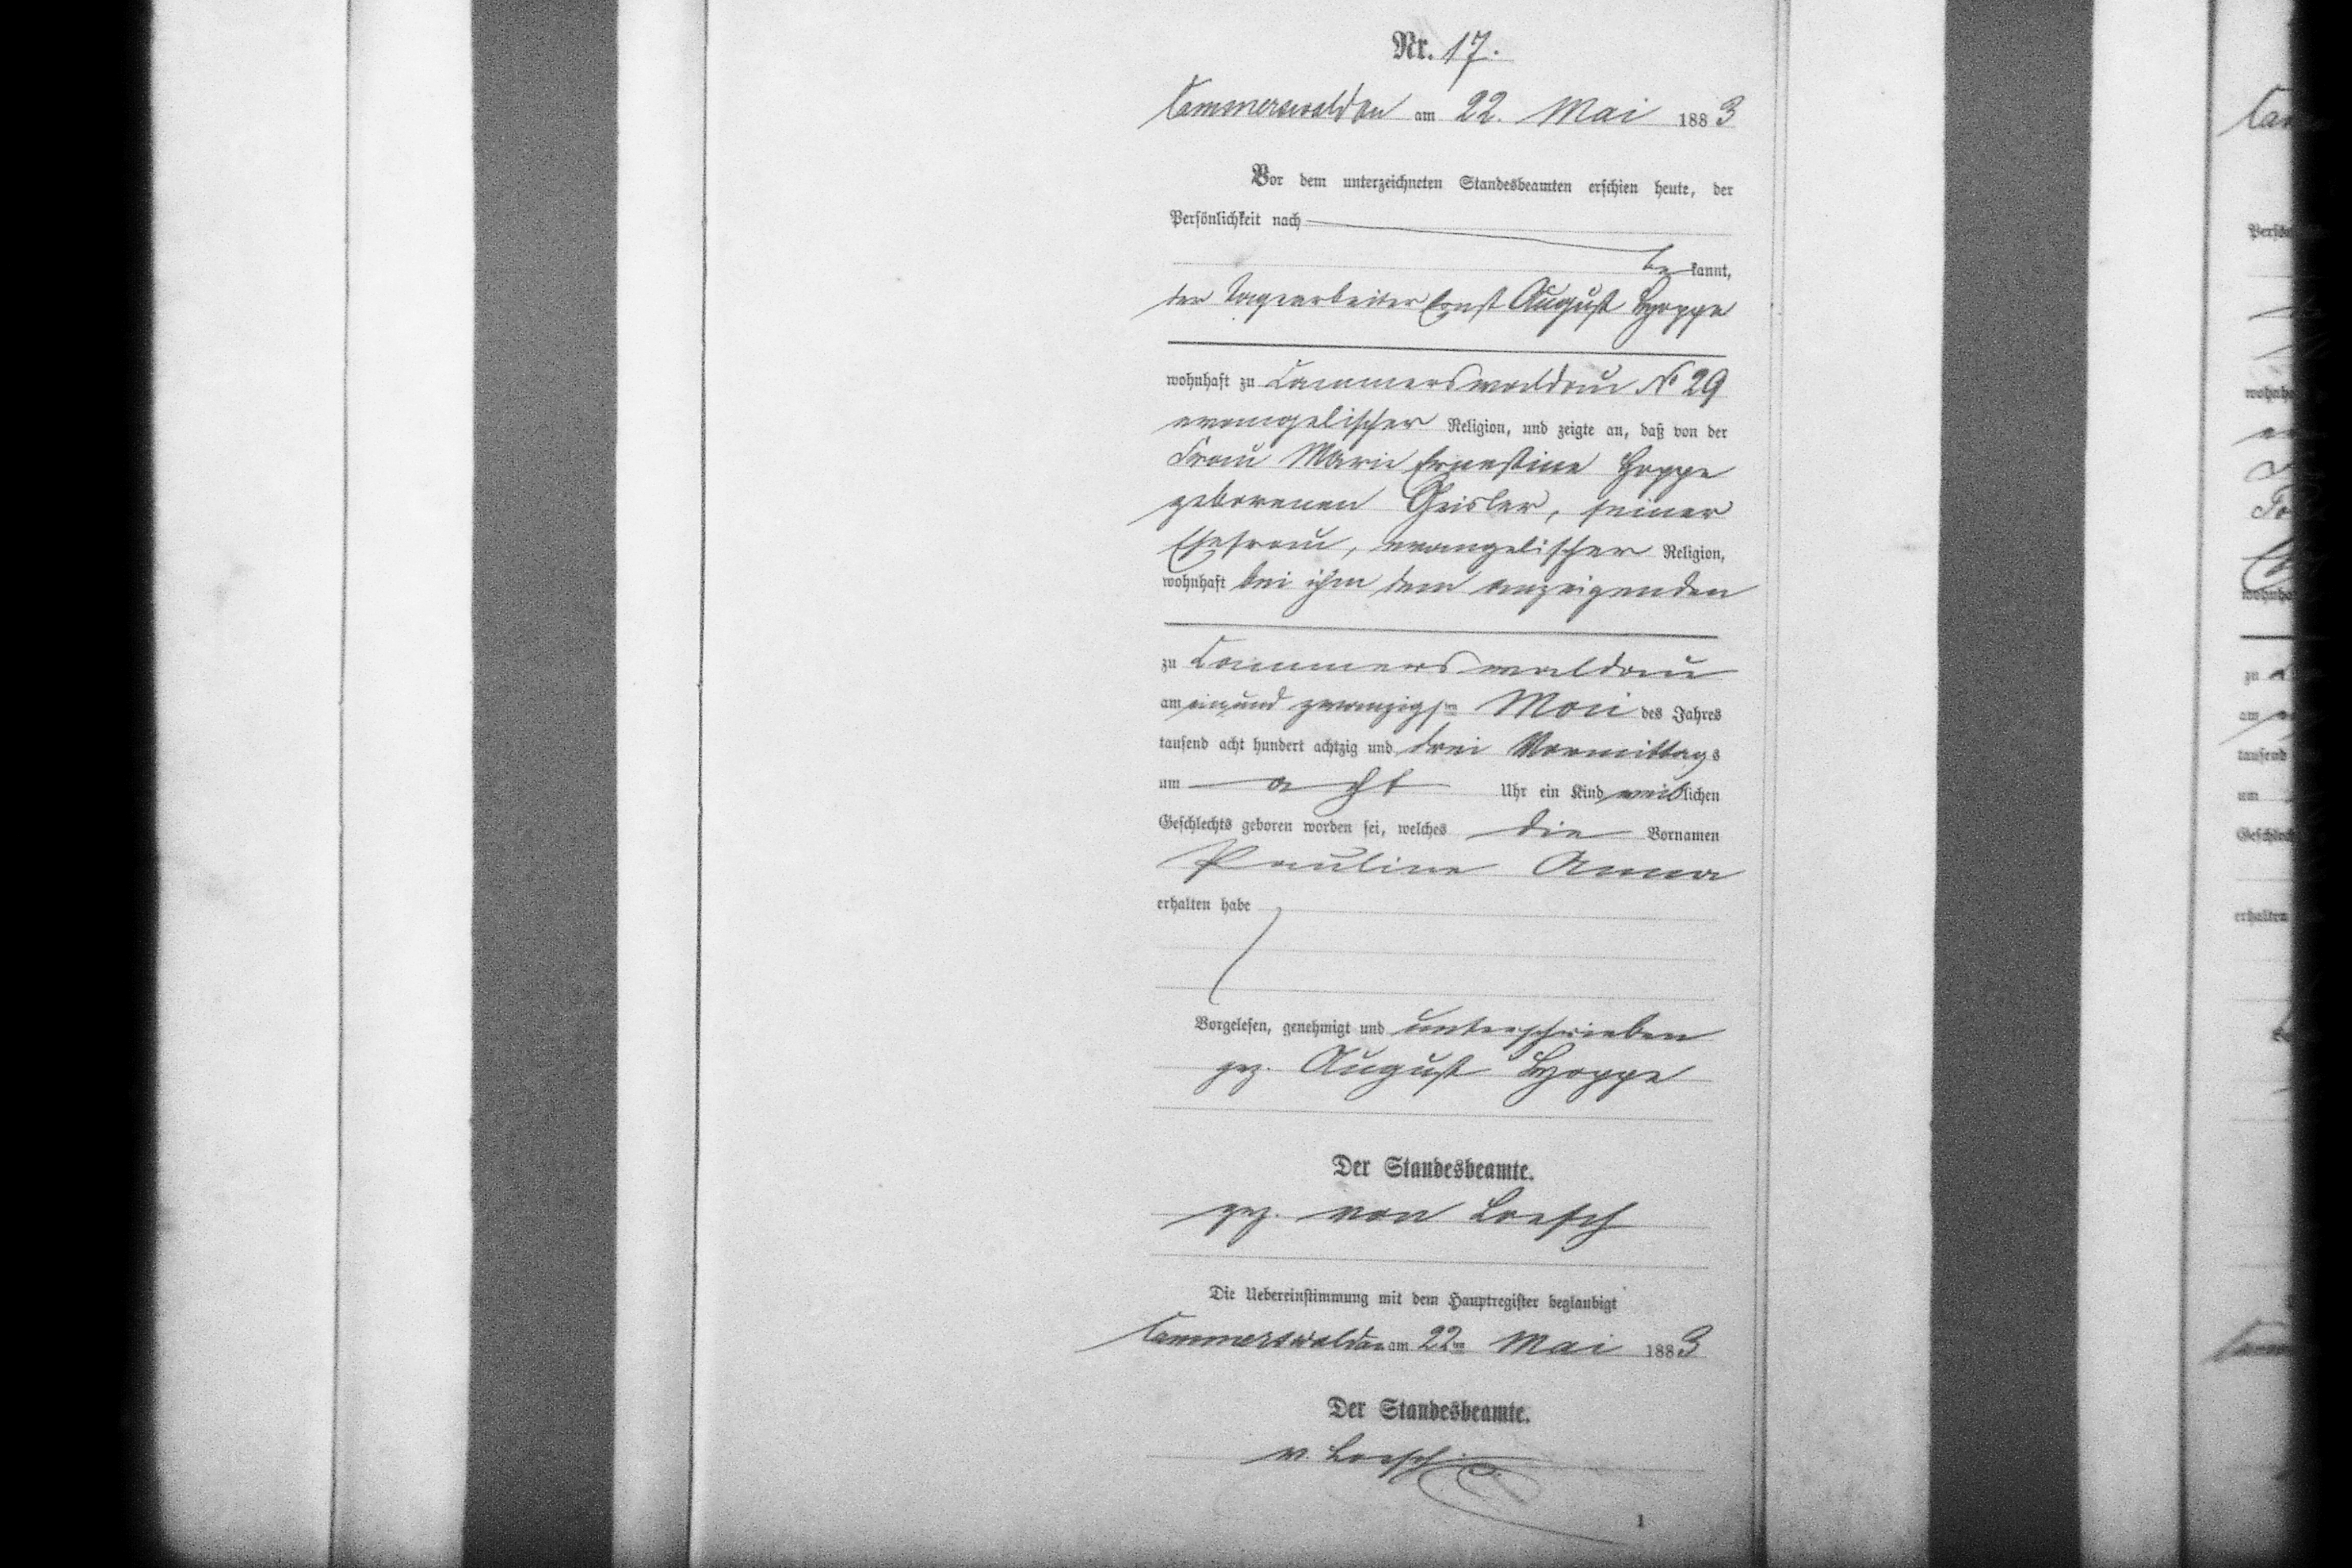 Nr. 17.
Cammerswaldau am 22. Mai 1883
Vor dem unterzeichneten Standesbeamten erschien heute, der
Persönlichkeit nach
bekannt,
der Tagearbeiter Ernst August Hoppe
wohnhaft zu Cammerswaldau No 29
evangelischer Religion, und zeigte an, daß von der
Frau Marie Ernestine Hoppe
geborenen Geisler, seiner
Ehefrau, evangelischer Religion,
wohnhaft bei ihm dem anzeigenden
zu Cammerswaldau
am einundzwanzigsten Mai des Jahres
tausend acht hundert achtzig und drei Vormittags
um acht Uhr ein Kind weiblichen
Geschlechts geboren worden sei, welches die Vornamen
Pauline Anna
erhalten habe
Vorgelesen, genehmigt und unterschrieben
gez. August Hoppe
Der Standesbeamte.
gez. von Loesch
Die Uebereinstimmung mit dem Hauptregister beglaubigt
Cammerswaldau am 22ten Mai 1883
Der Standesbeamte.
v. Loesch
1